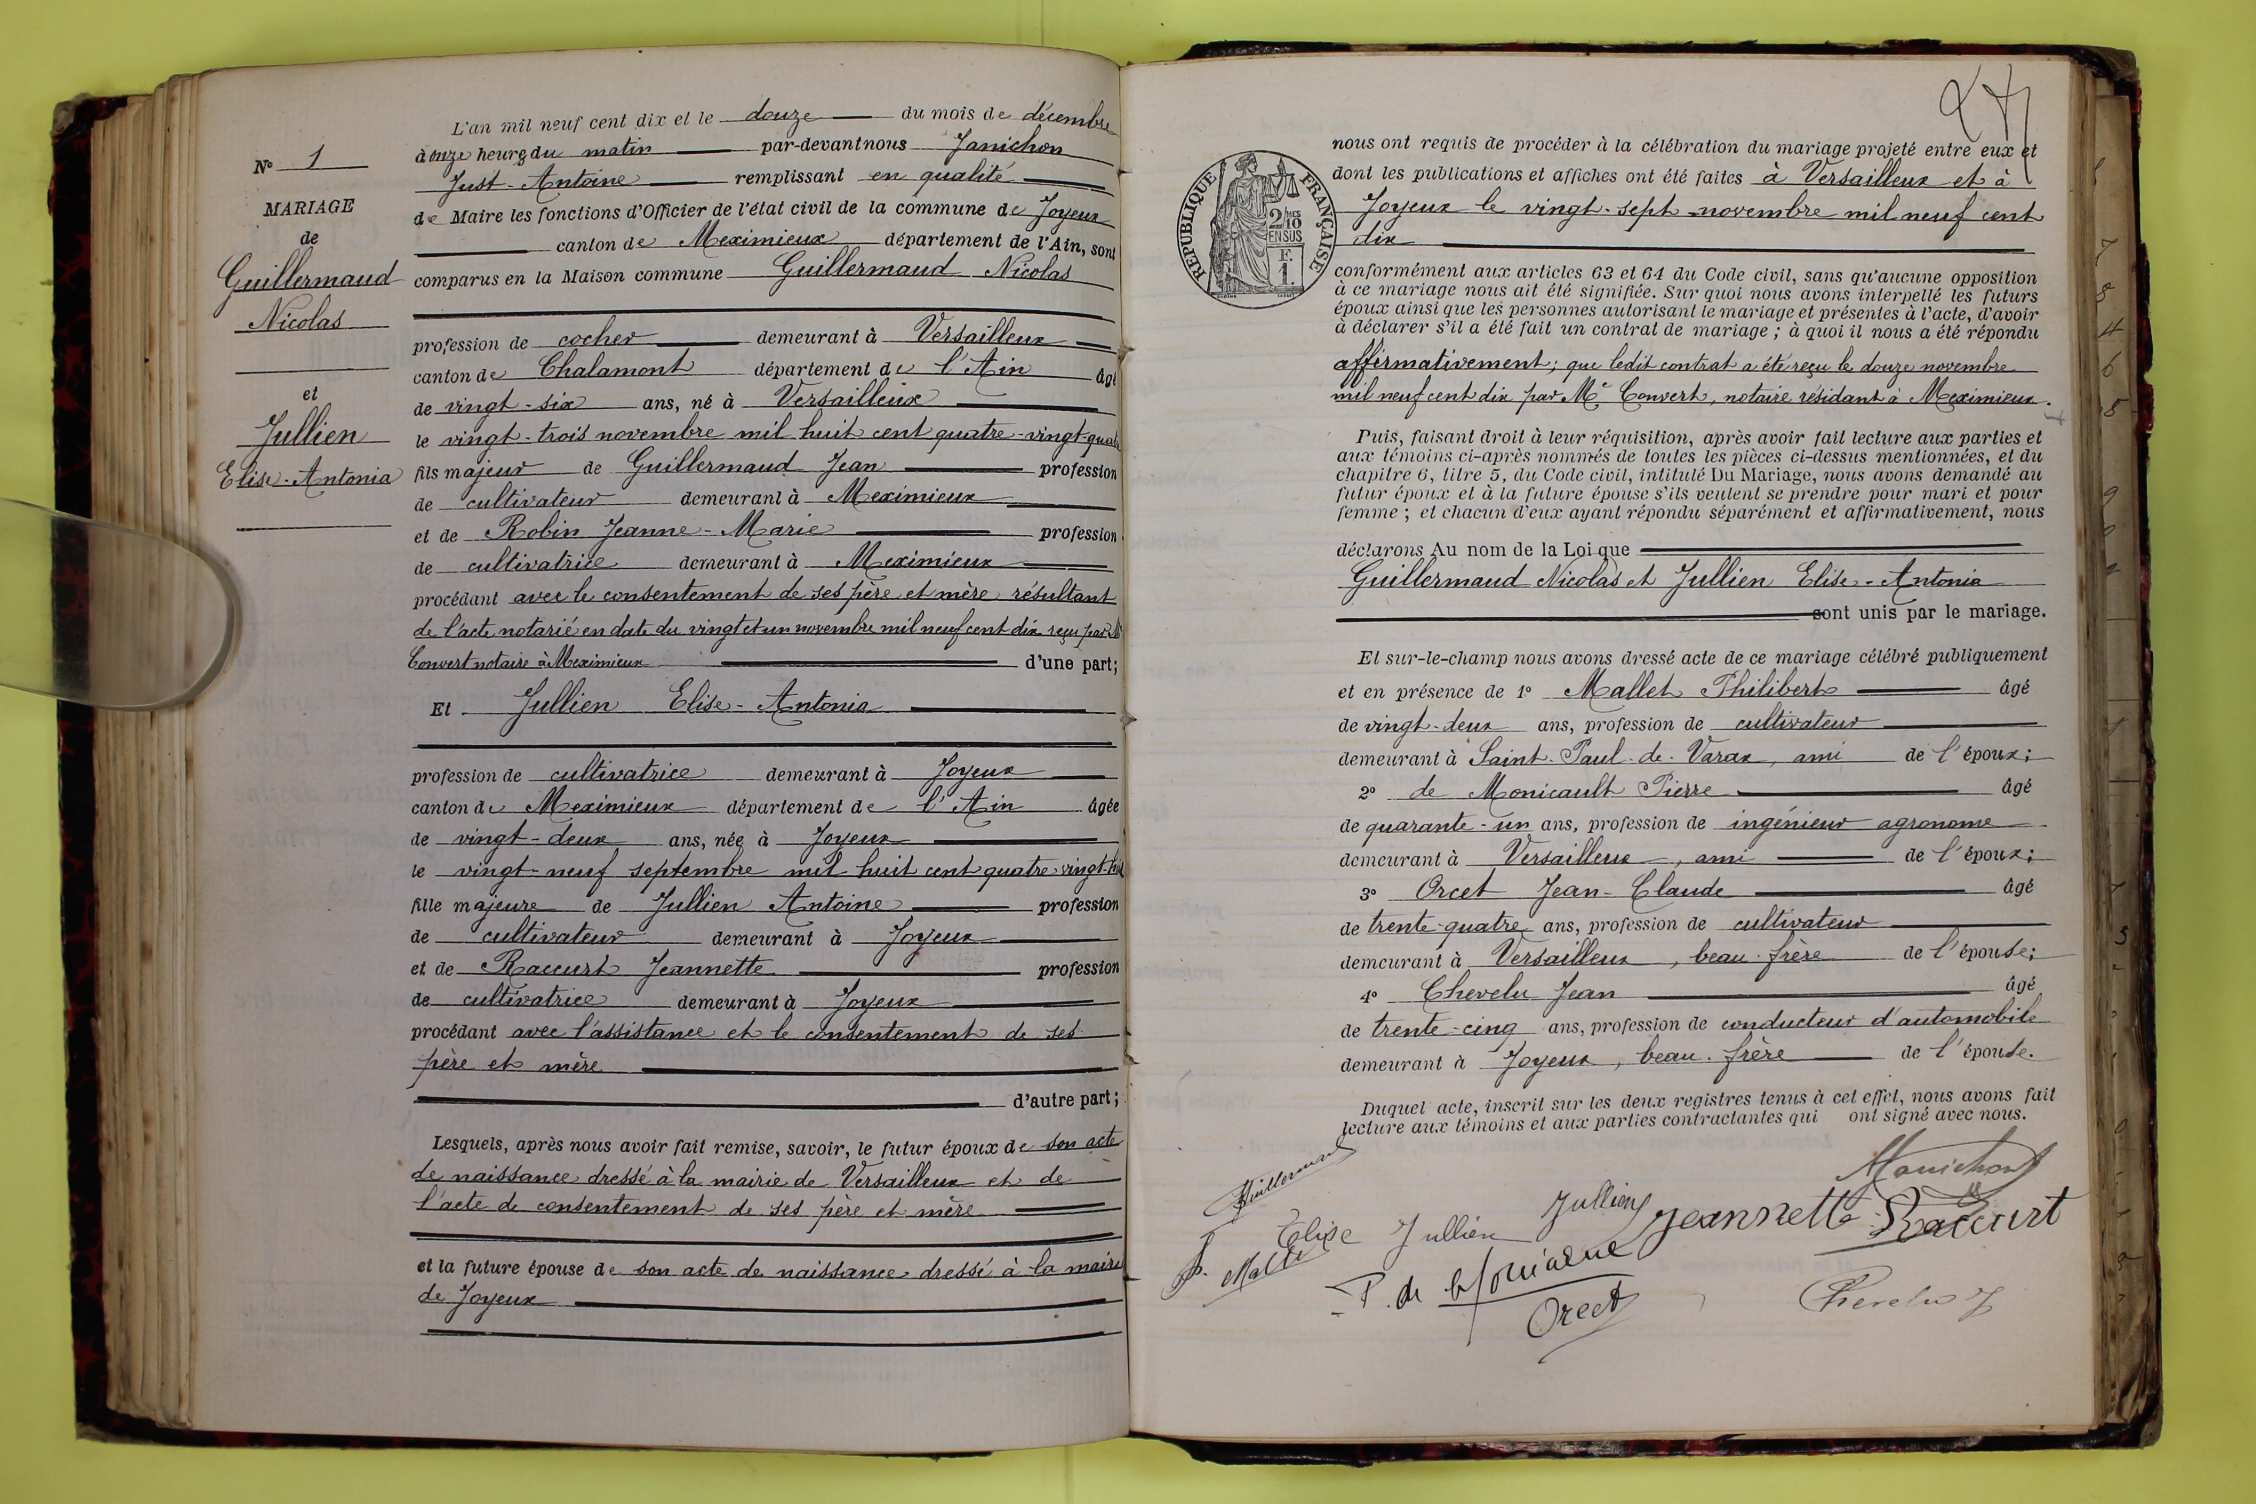 N° 1
MARIAGE
de
Guillermaud
Nicolas
et
Jullien
Elise-Antonia
L'an mil neuf cent dix et le douze du mois de décembre
à onze heures du matin par-devant nous Janichon
Just-Antoine remplissant en qualité
de Maire les fonctions d'Officier de l'état civil de la commune de Joyeux
canton de Meximieux département de l'Ain, sont
comparus en la Maison commune Guillermaud Nicolas
profession de cocher demeurant à Versailleux
canton de Chalamont département de l'Ain âgé
de vingt-six ans, né à Versailleux
le vingt-trois novembre mil huit cent quatre-vingt-quatre
fils majeur de Guillermaud Jean profession
de cultivateur demeurant à Meximieux
et de Robin Jeanne-Marie profession
de cultivatrice demeurant à Meximieux
procédant avec le consentement de ses père et mère résultant
de l'acte notarié en date du vingt et un novembre mil neuf cent dix reçu par Me
Convert notaire à Meximieux d'une part;
Et Jullien Elise-Antonia
profession de cultivatrice demeurant à Joyeux
canton de Meximieux département de l'Ain âgée
de vingt-deux ans, née à Joyeux
le vingt-neuf septembre mil huit cent quatre-vingt-huit
fille majeure de Jullien Antoine profession
de cultivateur demeurant à Joyeux
et de Raccurt Jeannette profession
de cultivatrice demeurant à Joyeux
procédant avec l'assistance et le consentement de ses
père et mère
d'autre part;
Lesquels, après nous avoir fait remise, savoir, le futur époux de son acte
de naissance dressé à la mairie de Versailleux et de
l'acte de consentement de ses père et mère
et la future épouse de son acte de naissance dressé à la mairie
de Joyeux
RÉPUBLIQUE FRANÇAISE
2/10 MES
EN SUS
F.
1.
nous ont requis de procéder à la célébration du mariage projeté entre eux et
dont les publications et affiches ont été faites à Versailleux et à
Joyeux le vingt-sept novembre mil neuf cent
dix
conformément aux articles 63 et 64 du Code civil, sans qu'aucune opposition
à ce mariage nous ait été signifiée. Sur quoi nous avons interpellé les futurs
époux ainsi que les personnes autorisant le mariage et présentes à l'acte, d'avoir
à déclarer s'il a été fait un contrat de mariage ; à quoi il nous a été répondu
affirmativement; que ledit contrat a été reçu le douze novembre
mil neuf cent dix par Me Convert, notaire résidant à Meximieux.
Puis, faisant droit à leur réquisition, après avoir fait lecture aux parties et
aux témoins ci-après nommés de toutes les pièces ci-dessus mentionnées, et du
chapitre 6, titre 5, du Code civil, intitulé Du Mariage, nous avons demandé au
futur époux et à la future épouse s'ils veulent se prendre pour mari et pour
femme ; et chacun d'eux ayant répondu séparément et affirmativement, nous
déclarons Au nom de la Loi que
Guillermaud Nicolas et Jullien Elise-Antonia
sont unis par le mariage.
Et sur-le-champ nous avons dressé acte de ce mariage célébré publiquement
et en présence de 1° Mallet Philibert âgé
de vingt-deux ans, profession de cultivateur
demeurant à Saint-Paul-de-Varax, ami de l'époux;
2° de Monicault Pierre âgé
de quarante-un ans, profession de ingénieur agronome
demeurant à Versailleux, ami de l'époux;
3° Orcet Jean-Claude âgé
de trente-quatre ans, profession de cultivateur
demeurant à Versailleux, beau-frère de l'épouse;
4° Chevelu Jean âgé
de trente-cinq ans, profession de conducteur d'automobile
demeurant à Joyeux, beau-frère de l'épouse.
Duquel acte, inscrit sur les deux registres tenus à cet effet, nous avons fait
lecture aux témoins et aux parties contractantes qui ont signé avec nous.
Guillermaud
Janichon
Elise Jullien Jullien Jeannette Raccurt
P. Mallet
P. de Monicault
Orcet
Chevelu J